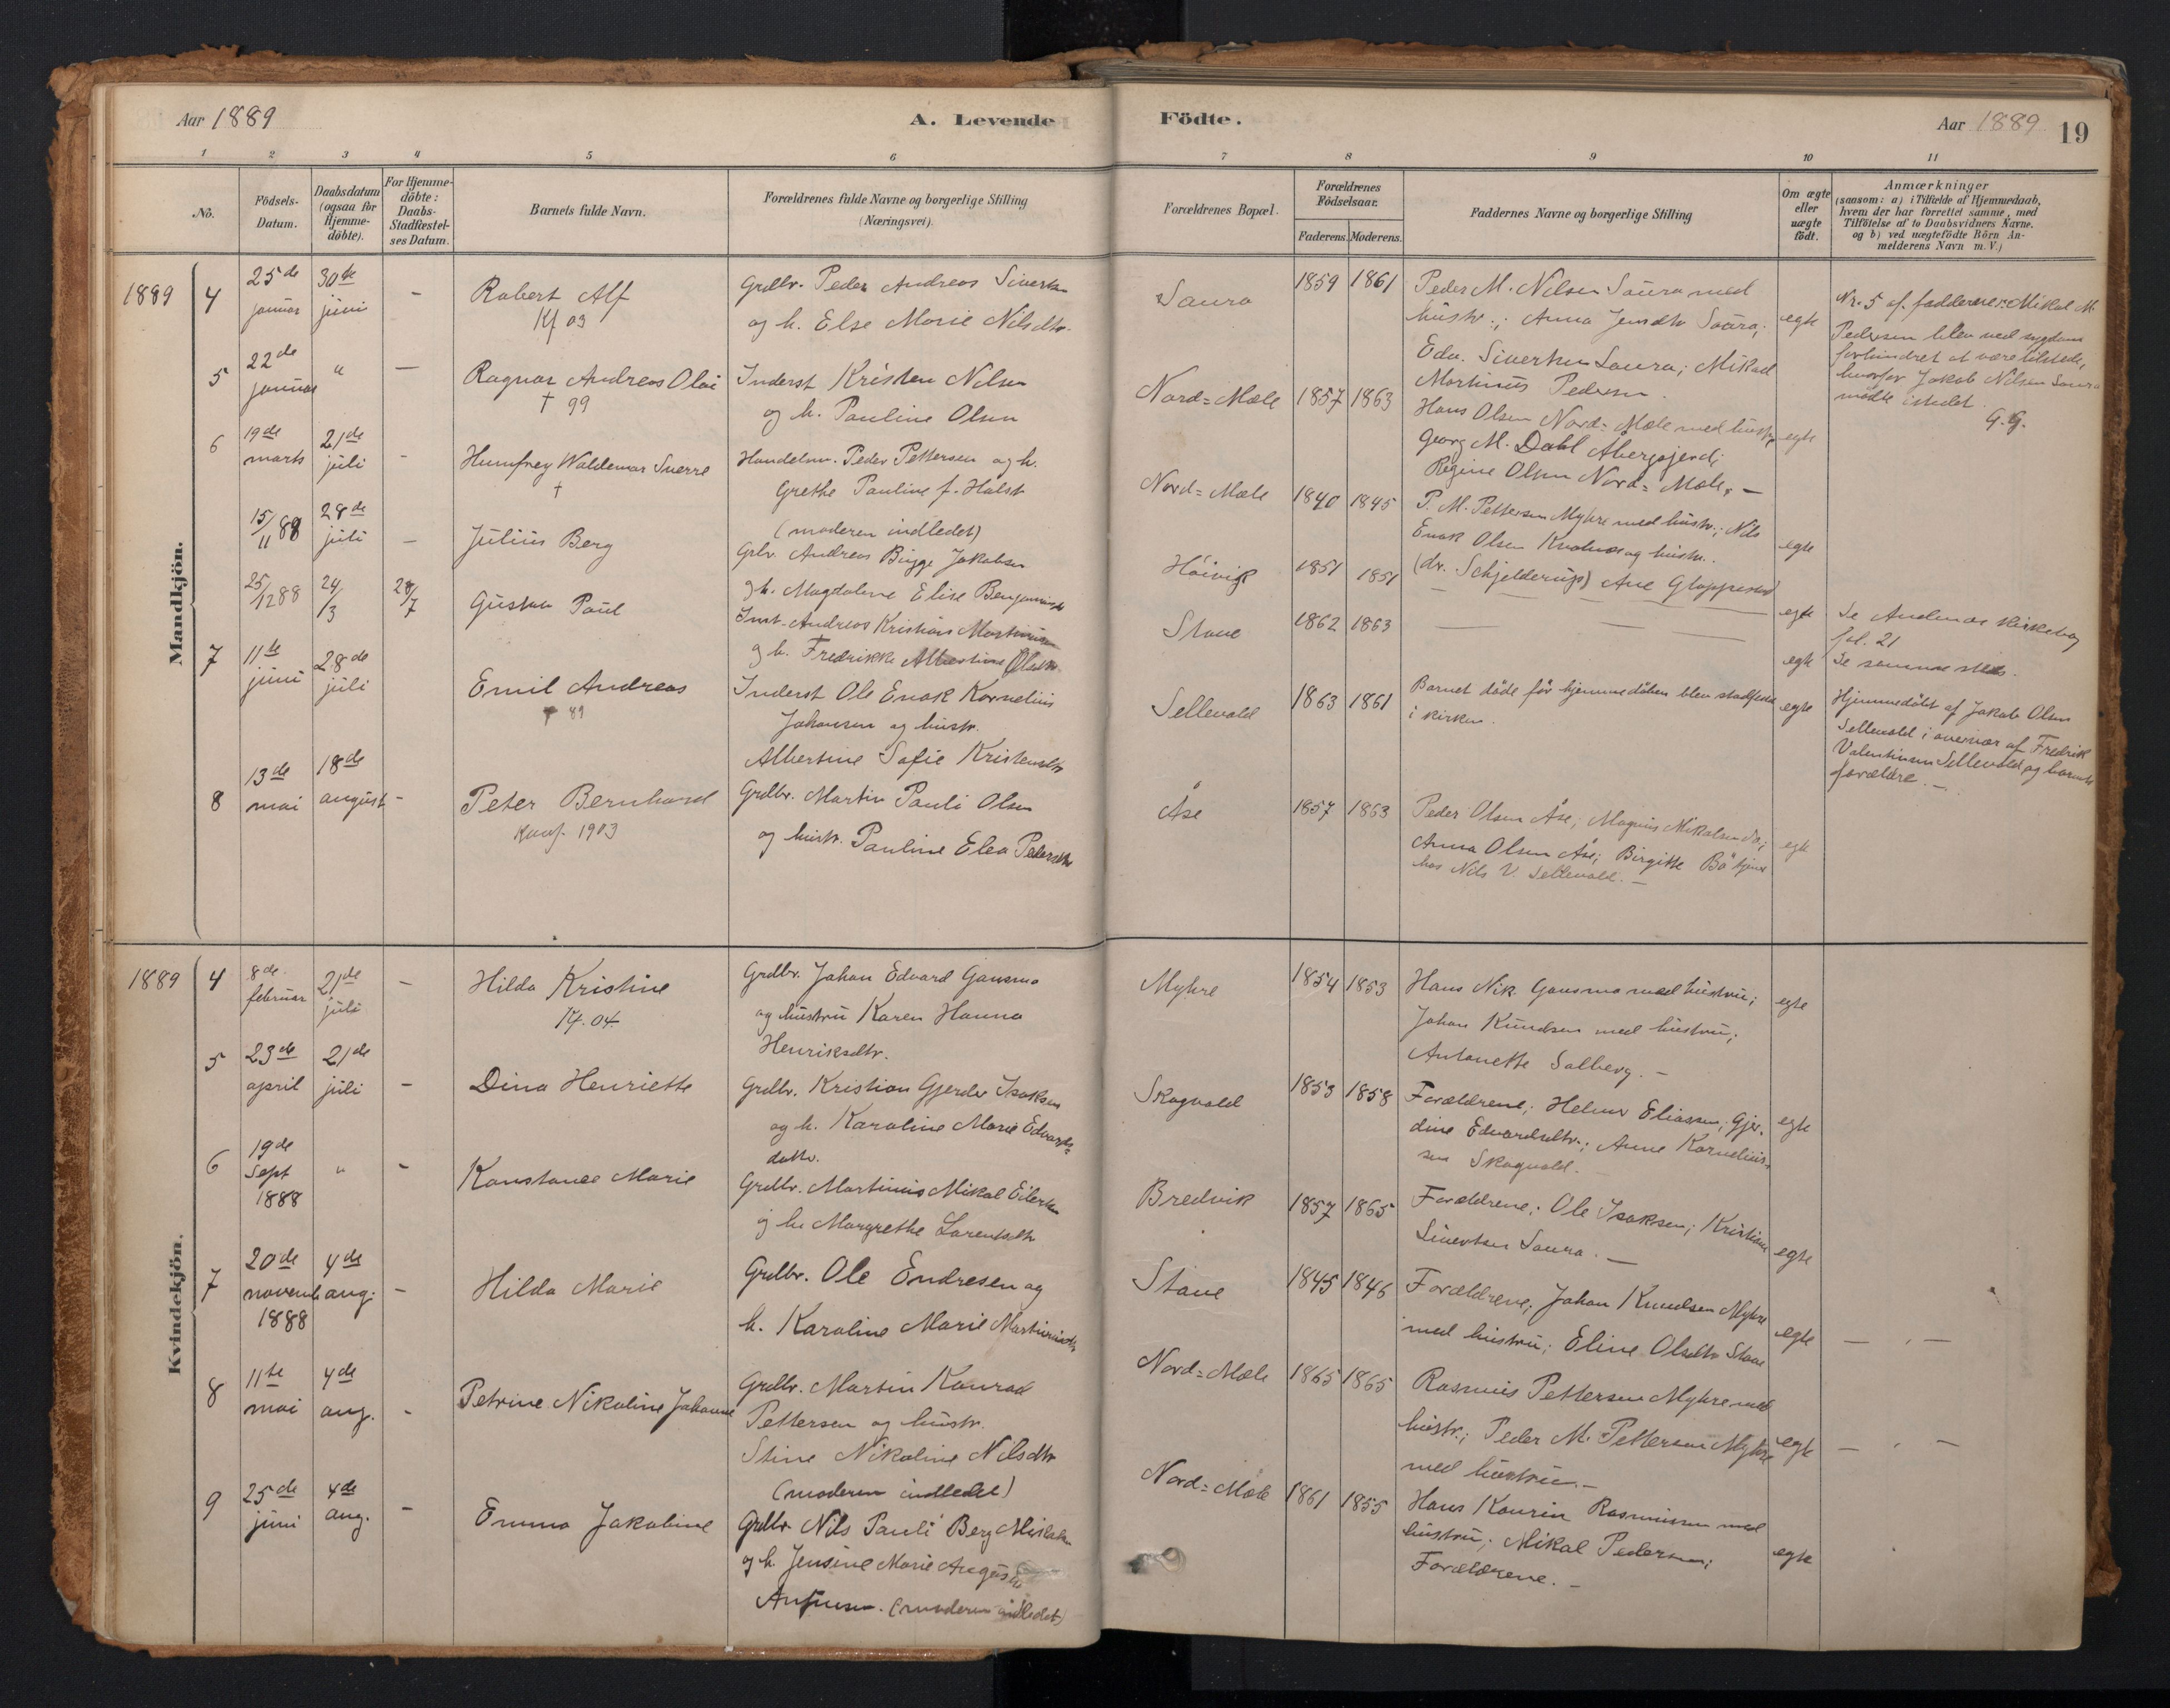 Aar 1889
A. Levende
Födte.
Aar 1889 19
1 2 3 4 5 6 7 8 9 10 11
No.
Födsels-
Datum.
Daabsdatum
(ogsaa for
Hjemme-
döbte).
For Hjemme-
döbte:
Daabs-
Stadfæstel-
ses Datum.
Barnets fulde Navn.
Forældrenes fulde Navne og borgerlige Stilling
(Næringsvei).
Forældrenes Bopæl.
Forældrenes
Födselsaar.
Faderens. Moderens.
Faddernes Navne og borgerlige Stilling
Om ægte
eller
uægte
födt.
Anmærkninger
(saasom: a) i Tilfælde af Hjemmedaab,
hvem der har forrettet samme, med
Tilföielse af to Daabsvidners Navne.
og b) ved uægtefödte Börn An-
melderens Navn m.V.)
Mandkjön.
1889 4
25de
januar
30te
juni
-
Robert Alf
Kf 03
Grdbr. Peder Andreas Sivertsen
og h. Else Marie Nilsdtr.
Saura
1859 1861
Peder M. Nilsen Saura med
hustr.; Anna Jensdtr Saura;
Edv. Sivertsen Saura; Mikael
Martinus Pedersen.
egte
Nr. 5 af fadderne: Mikal M.
Pedersen blev ved sygdom
forhindret at være tilstede,
hvorfor Jakob Nilsen Saura
mødte istedet.
G.G.
5
22de
januar
"
—
Ragnar Andreas Olai
† 99
Inderst Kristen Nilsen
og h. Pauline Olsen
Nord=Mæle
1857 1863
Hans Olsen Nord=Mæle med hustr;
Georg M. Dahl Åbergsjord;
Regine Olsen Nord=Mæle. —
egte
6
19de
marts
21de
juli
-
Humfrey Waldemar Sverre
†
Handelsm. Peder Pettersen og h.
Grethe Pauline f. Holst
(moderen indledet)
Nord=Mæle
1840 1845
P. M. Pettersen Myhre med hustr.; Nils
Enok Olsen og hustr.
(dr. Schjelderup) Ane
egte
15/11 88
28de
juli
-
Julius Berg
Grbr. Andreas Bugge Jakobsen
og h. Magdalene Elise
Höivik
1851 1851
— — —
egte
Se Andenæs kirkebog
fol. 21
25/12 88
24/3
28/7
Gustav Paul
Inst. Andreas Kristian
og h. Fredrikke Albertine Olsdtr.
Stave
1862 1863
— — —
egte
Se samme sted.
7
11te
juni
28de
juli
Emil Andreas
† 89
Inderst Ole Enok Kornelius
Johansen og hustr.
Albertine Sofie Kristensdtr
Sellevold
1863 1861
Barnet döde för hjemmedåben blev stadfæstet
i kirken.
egte
Hjemmedöbt af Jakob Olsen
Sellevold i overvær af Fredrik
Valentinsen Sellevold og barnets
forældre. —
8
13de
mai
18de
august
-
Peter Bernhard
Konf. 1903
Grdbr. Martin Pauli Olsen
og hustr. Pauline Elea Pedersdtr
Åse
1857 1863
Peder Olsen Åse; Magnus Mikalsen do;
Anna Olsen Åse; Birgitte
hos Nils V. Sellevold. —
egte
Kvindekjön.
1889 4
8de
februar
21de
juli
-
Hilda Kristine
Kf. 04.
Grdbr. Johan Edvard Gausmo
og hustru Karen Hanna
Henriksdtr.
Myhre
1854 1853
Hans Nik. Gausmo med hustru;
Johan Knudsen med hustru;
Antonette Solberg. —
egte
5
23de
april
21de
juli
-
Dina Henriette
Grdbr. Kristian Gjerder Isaksen
og h. Karoline Marie Edvards=
datter.
Skogvold
1853 1858
Forældrene; Helmer Eliassen; Gjer-
dine Edvardsdtr.; Anne Kornelius-
sen Skogvold. —
egte
6
19de
Sept
1888
"
-
Konstance Marie
Grdbr. Martinus Mikal Eilertsen
og h. Margrethe Lorentsdtr
Bredvik
1857 1865
Forældrene; Ole Isaksen; Kristiane
Sivertsen Saura. —
egte
7
20de
novemb
1888
4de
aug.
-
Hilda Marie
Grdbr. Ole Endresen og
h. Karoline Marie Martinusdtr
Stave
1845 1846
Forældrene; Johan Knudsen Myhre
med hustru; Eline Olsdtr Stave
egte
— " —
8
11te
mai
4de
aug.
-
Petrine Nikoline Johanne
Grdbr. Martin Konrad
Pettersen og hustr.
Stine Nikoline Nilsdtr
(moderen indledet)
Nord=Mæle
1865 1865
Rasmus Pettersen Myhre med
hustr.; Peder M. Pettersen Myhre
med hustru. —
egte
— " —
9
25de
juni
4de
aug.
-
Emma Jakobine
Grdbr. Nils Pauli Berg Mikalsen
og h. Jensine Marie Augusta
(moderen indledet)
Nord=Mæle
1861 1855
Hans Kaurin Rasmussen med
hustru; Mikal Pedersen;
Forældrene. —
egte